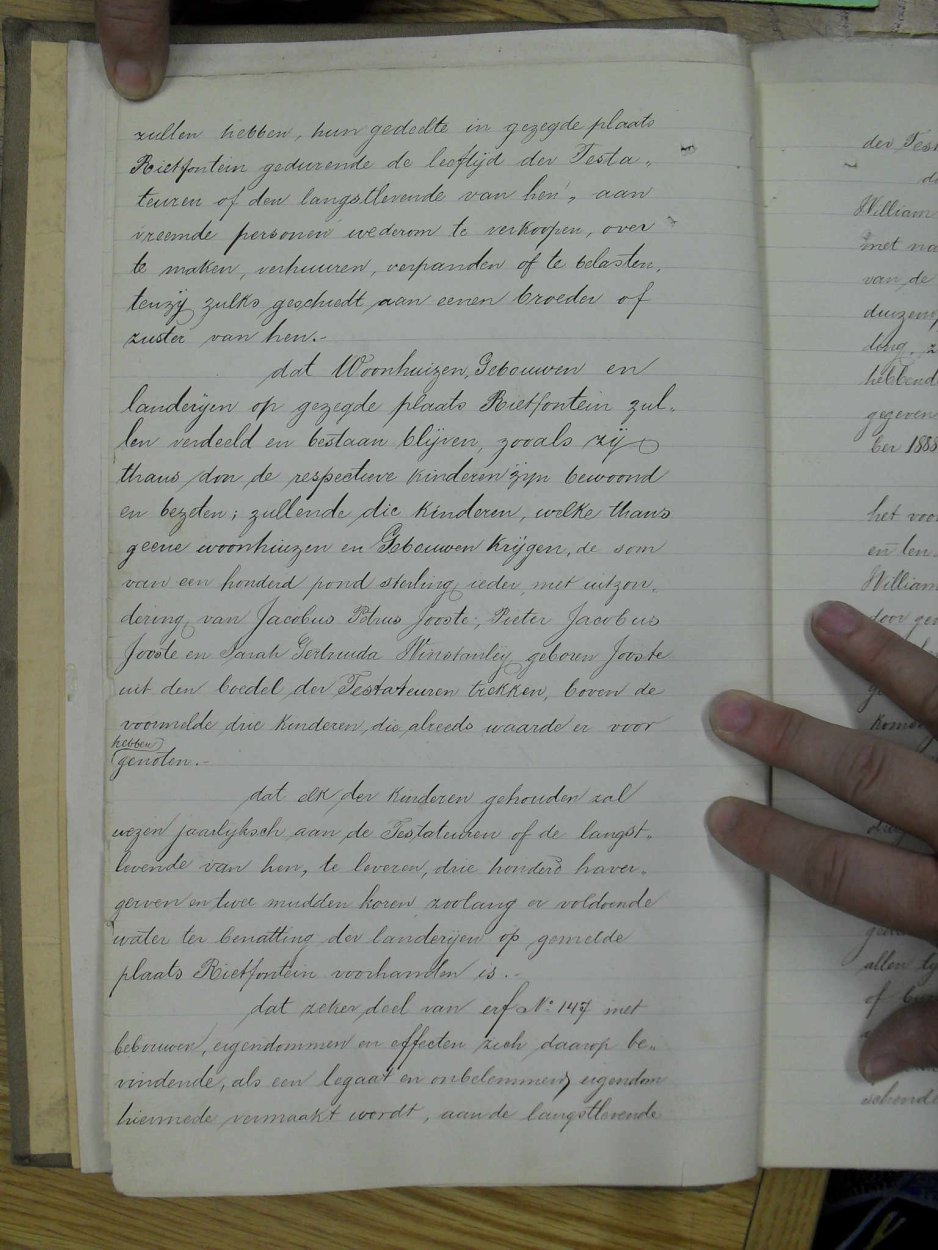 zullen hebben, hun gedeelte in gezegde plaats
Rietfontein gedurende de leeftijd der Testa„
teuren of den langstlevende van hen, aan
vreemde personen wederom te verkoopen, over
te maken, verhuuren, verpanden of te belasten,
tenzij zulks geschiedt aan eenen broeder of
zuster van hen.-
dat Woonhuizen, Gebouwen en
landerijen op gezegde plaats Rietfontein zul„
len verdeeld en bestaan blijven, zooals zij
thans door de respectieve kinderen zijn bewoond
en bezeten; zullende die kinderen, welke thans
geene woonhuizen en Gebouwen krijgen, de som
van een honderd pond sterling ieder, met uitzon„
dering van Jacobus Petrus Jooste, Pieter Jacobus
Jooste en Sarah Gertruida Winstanley geboren Jooste
uit den boedel der Testateuren trekken, boven de
voormelde drie kinderen, die alreeds waarde er voor
hebben
genoten.-
dat elk der kinderen gehouden zal
wezen jaarlijksch aan de Testateuren of de langst„
levende van hen, te leveren, drie honderd haver„
gerven en twee mudden koren zoolang er voldoende
water ter benatting der landerijen op gemelde
plaats Rietfontein voorhanden is.-
dat zeker deel van erf No. 147 met
gebouwen, eigendommen en effecten zich daarop be„
vindende, als een legaat en onbelemmerd eigendom
hiermede vermaakt wordt, aan de langstlevende
der
William
van de
ding
hebbend
gegeven
ber 1888
het voor
en ten
William
door
allen
of